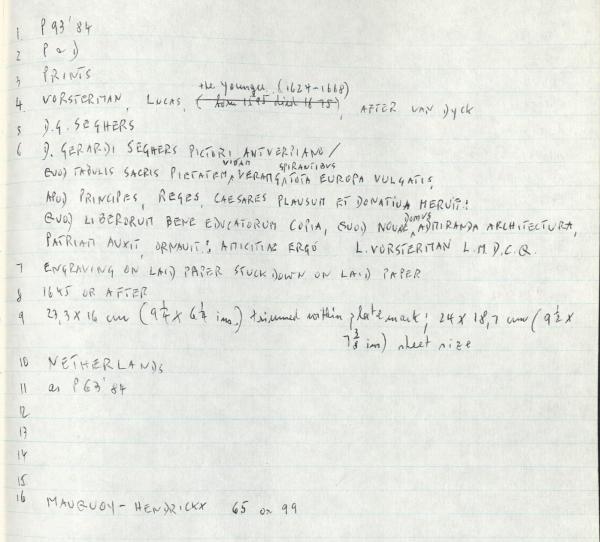 1 P 93'84
2 P a D
3 PRINTS
the younger (1624-1668)
4. VORSTERMAN, LUCAS, (born 1595 died 1675), AFTER VAN DYCK
5 D.G. SEGHERS
6 D. GERARDI SEGHERS PICTORI ANTVERPIANO/
VIDAM SPIRANTIBUS
QUOD TABULIS SACRIS PIETATEM, VERAMQ, TOTA EUROPA VULGATIS,
APUD PRINCIPES, REGES, CAESARES PLAUSUM ET DONATIUA MERUIT:
DOMUS
QUOD LIBERORUM BENE EDUCATORUM COPIA, QUOD NOUAE ADMIRANDA ARCHITECTURA,
PATRIAM AUXIT, ORNAUIT: AMICITIAE ERGO L. VORSTERMAN L.M.D.C.Q.
7 ENGRAVING ON LAID PAPER STUCK DOWN ON LAID PAPER
8 1645 OR AFTER
9 23,3 X 16 cm (9 1/4 X 6 1/4 ins.) trimmed within plate mark; 24 X 18,7 cm (9 1/2 X
7 3/8 ins) sheet size
10 NETHERLANDS
11 as P63'84
12
13
14
15
16 MAUQUOY-HENDRICKX 65 or 99